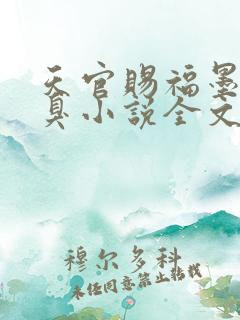 天官赐福墨
真小说全文
穆尔多科
未经同意禁止转载